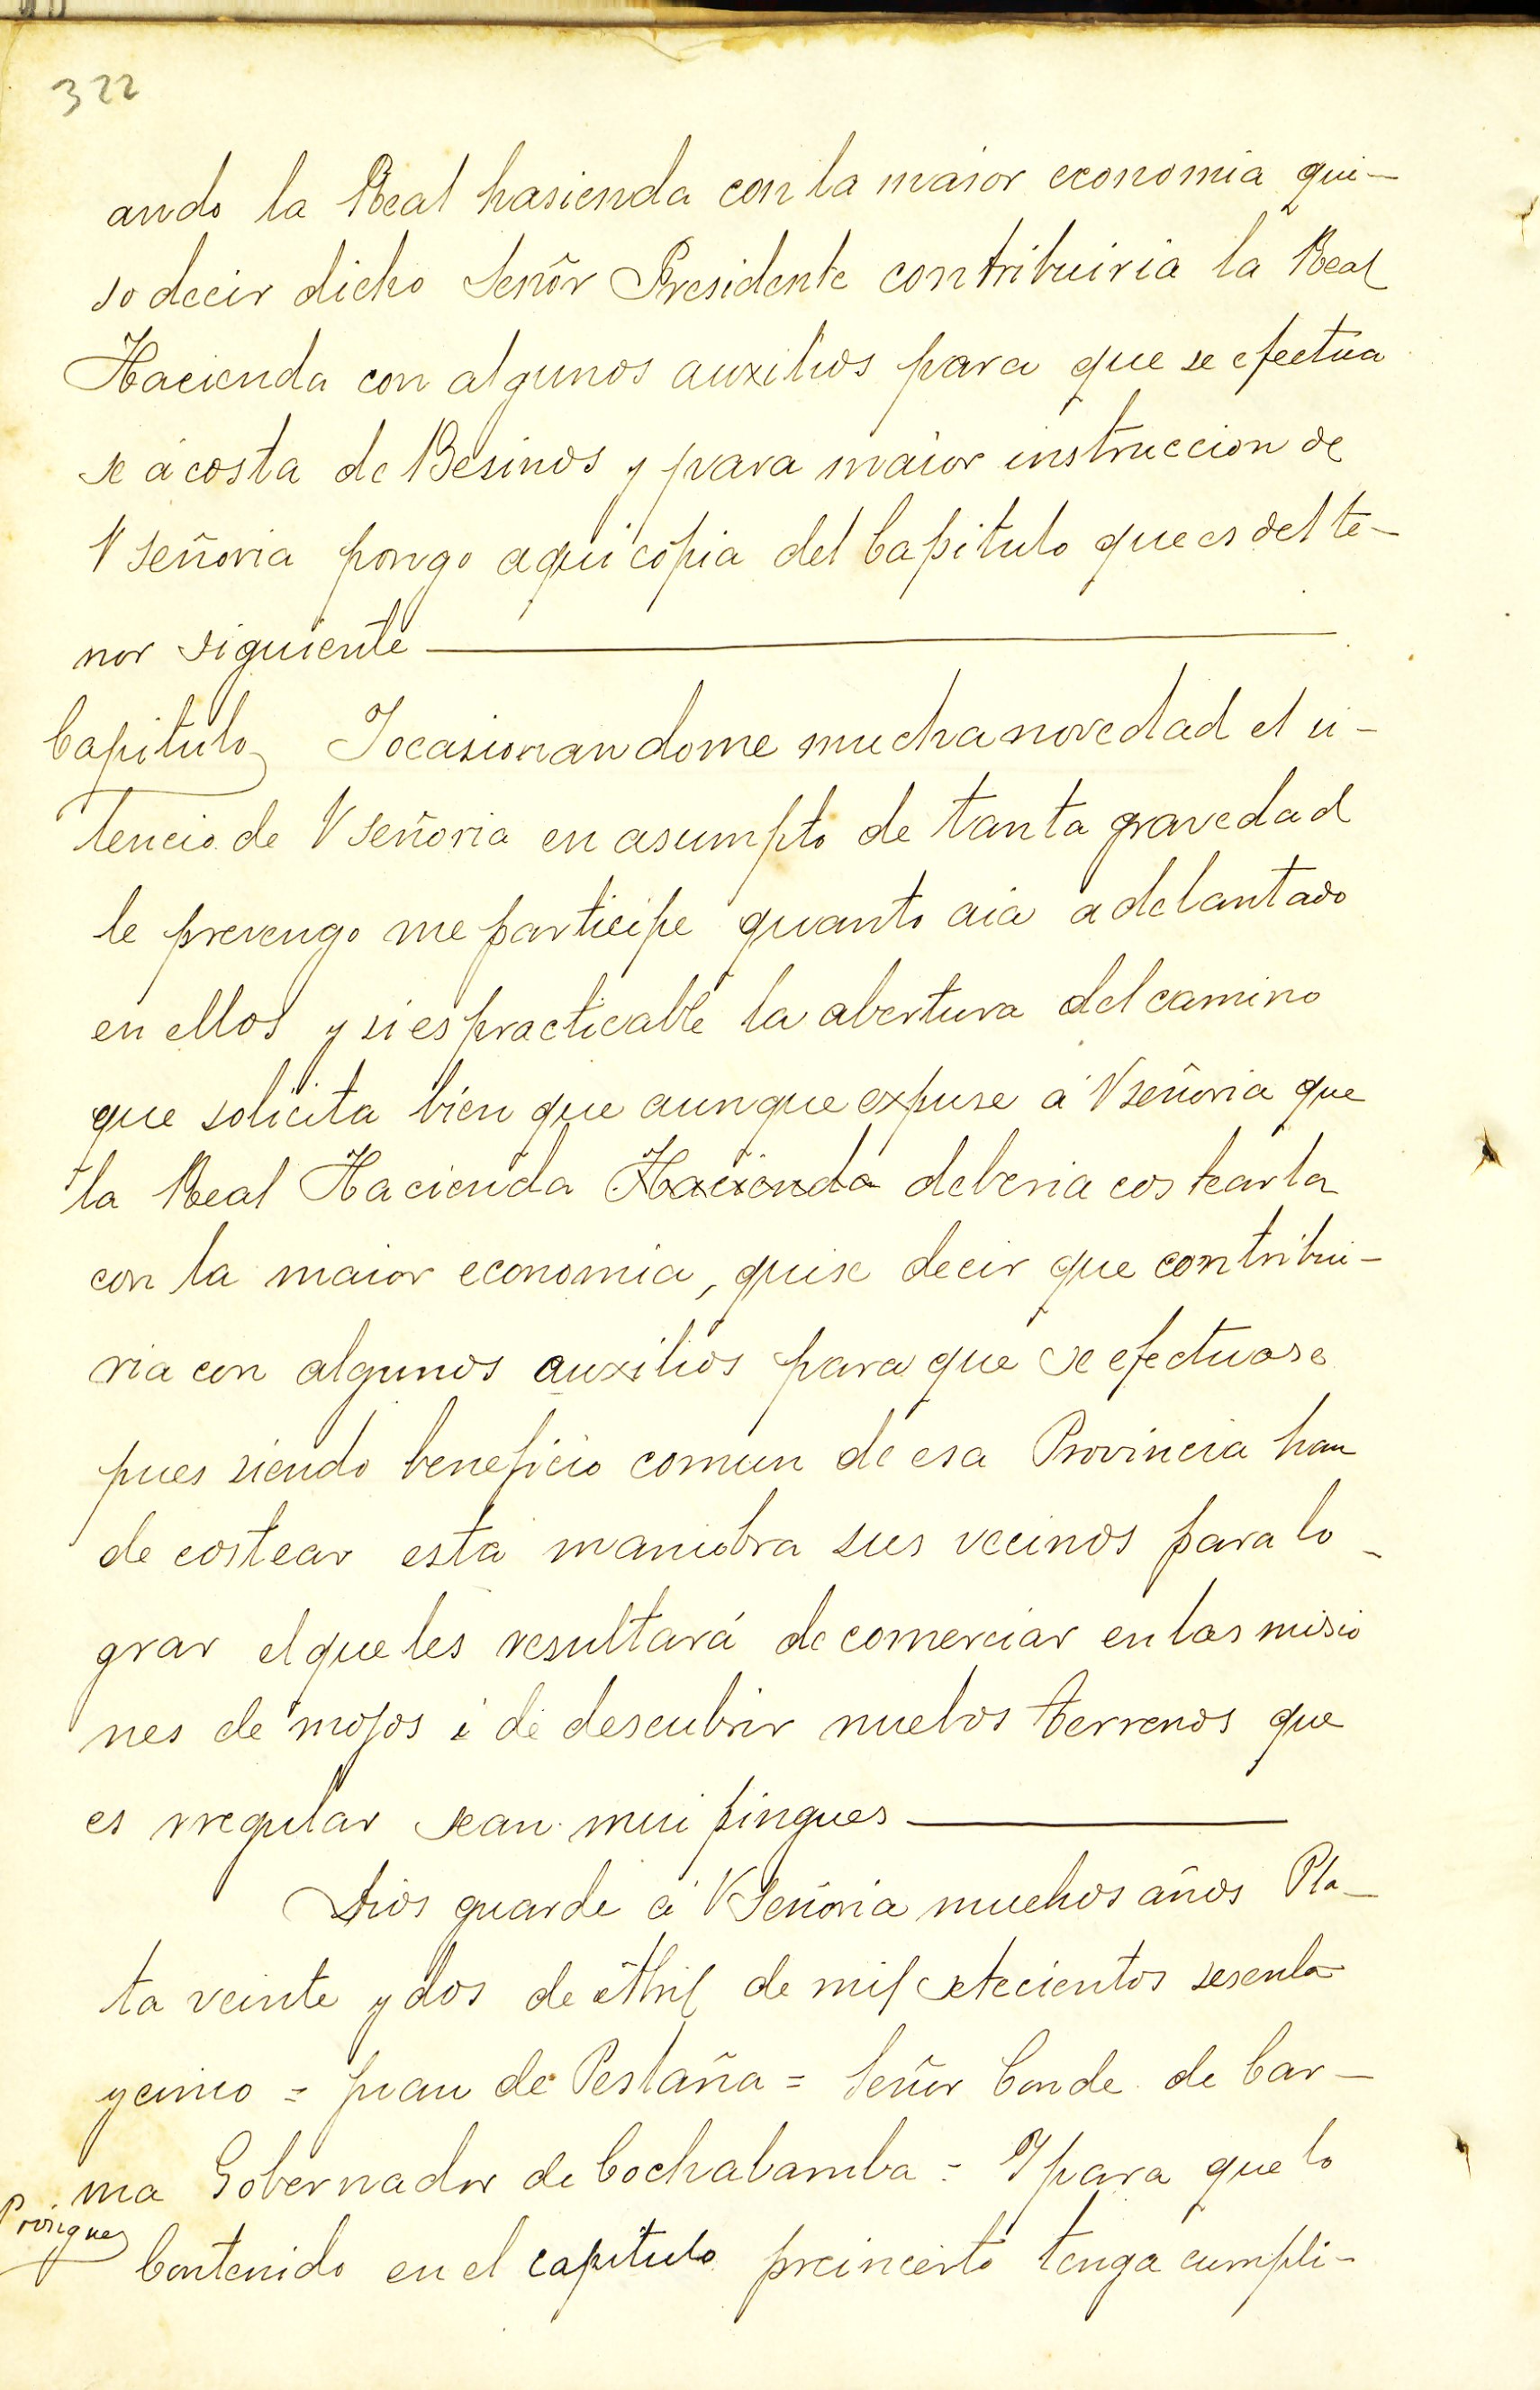 322
ando la Real hasienda con la maior economia qui-
so decir dicho Señor Presidente contribuiria la Real
Hacienda con algunos auxilios para que se efectua
se á costa de Besinos y para maior instruccion de
V señoria pongo aqui copia del Capitulo que es del te-
nor siguiente
Capitulo Y ocasionandome mucha novedad el si-
lencio de V señoria en asumpto de tanta gravedad
le prevengo me participe quanto aia adelantado
en ellos y si es practicable la abertura del camino
que solicita bien que aunque expuse á V señoria que
la Real Hacienda Hacienda deberia costearla
con la maior economia, quise decir que contribui-
ria con algunos auxilios para que se efectuase
pues siendo beneficio comun de esa Provincia han
de costear esta maniobra sus vecinos para lo-
grar el que les resultará de comerciar en las misio
nes de mojos i de descubrir nuebos terrenos que
es rregular sean mui pingues
Dios guarde á V Señoria muchos años Pla-
ta veinte y dos de Abril de mil setecientos sesenta
y cinco = Juan de Pestaña = Señor Conde de Car-
ma Gobernador de Cochabamba = Y para que lo
Prosigue Contenido en el capitulo preincerto tenga cumpli-